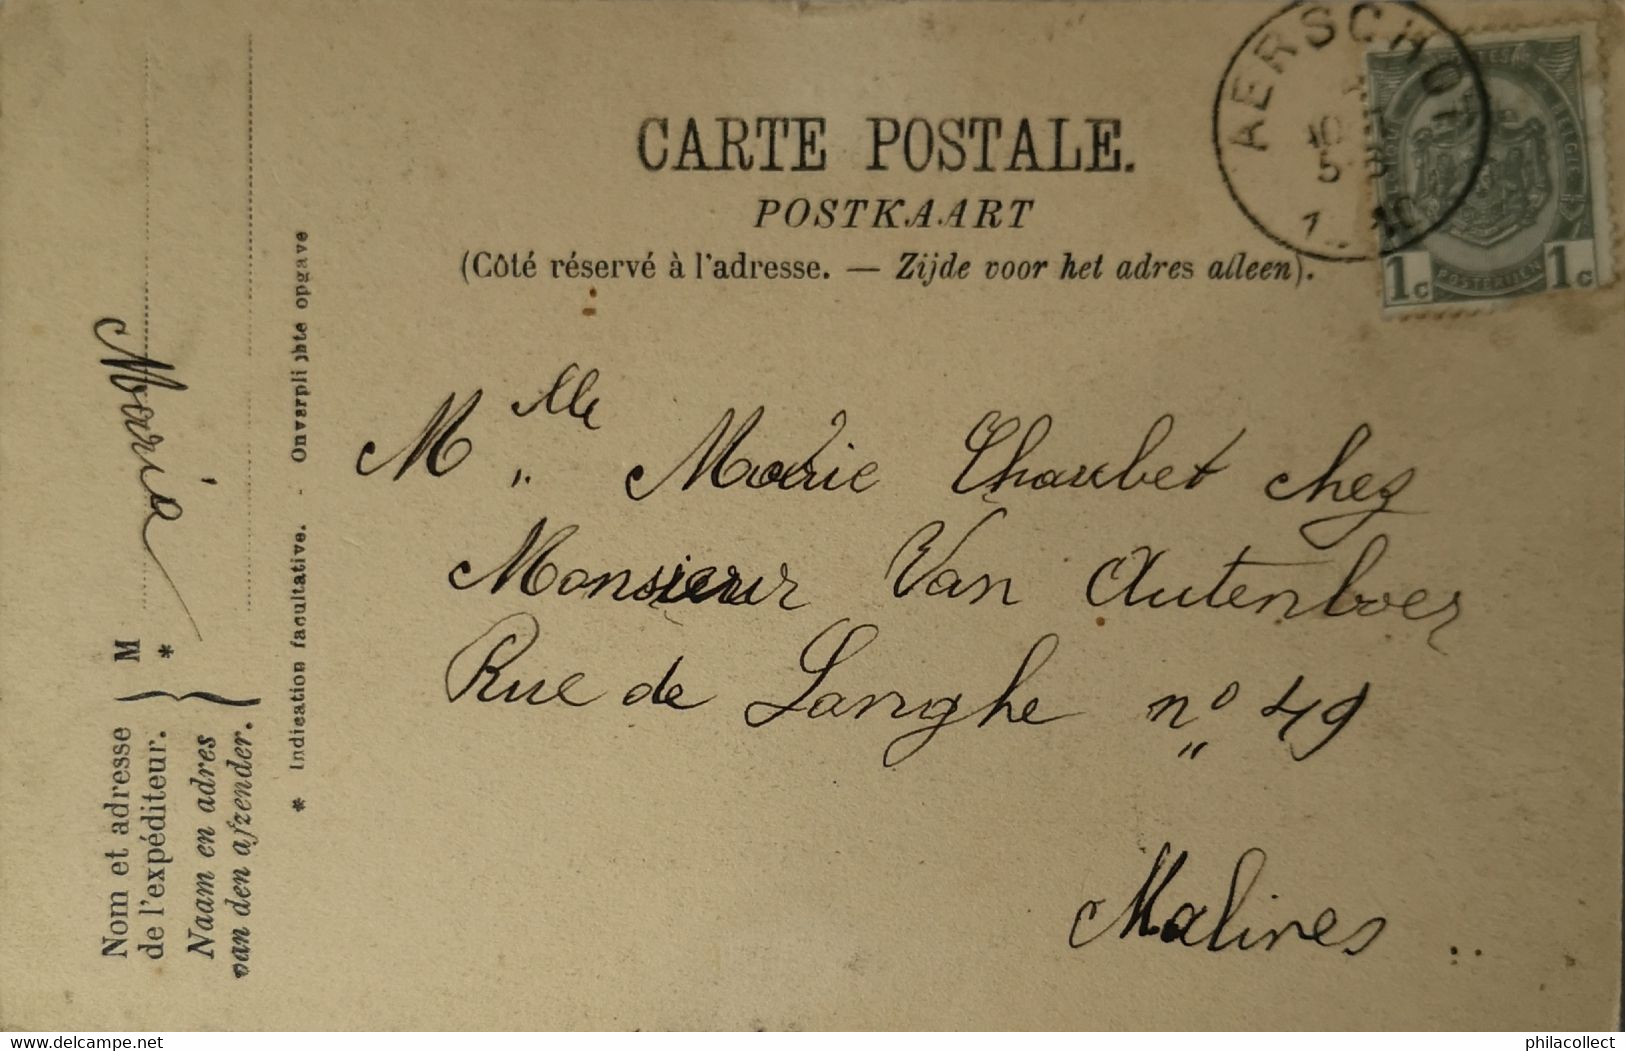 CARTE POSTALE.
POSTKAART
(Côté réservé à l'adresse. — Zijde voor het adres alleen).
AERSCHOT
10
5
1 c
1 c
POSTERIJEN
BELGIQUE
Mlle Marie Chaubet chez
Monsieur Van Autenboer
Rue de Langhe no 49
Malines ..
Nom et adresse
de l'expéditeur.
Naam en adres
van den afzender.
M
*
Maria
* Indication facultative. - Onverplichte opgave
www.delcampe.net
philacollect